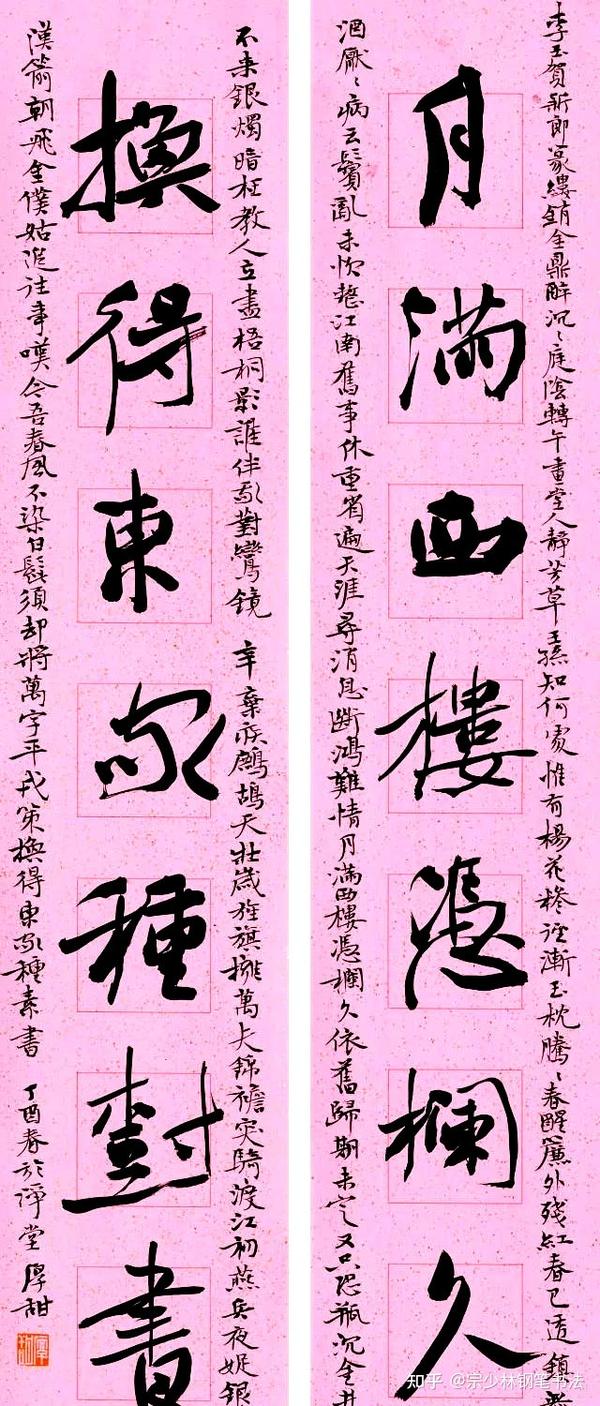 李玉賀新郎篆縷銷金鼎醉沉〻庭陰轉午畫堂人靜芳草王孫知何處惟有楊花糝徑漸玉枕騰〻春醒簾外殘紅春已透鎮無
月滿西樓憑欄久
酒厭〻病云鬢亂未忺整江南舊事休重省遍天涯尋消息斷鴻難情月滿西樓憑欄久依舊歸期未定又只恐瓶沉金井
不來銀燭暗枉教人立盡梧桐影誰伴我對鸞鏡 辛棄疾鷓鴣天壯歲旌旗擁萬夫錦襜突騎渡江初燕兵夜娖銀
換得東家種樹書
漢箭朝飛金僕姑追往事嘆今吾春風不染白髭須却將萬字平戎策換得東家種素書 丁酉春於淨堂 厚甜
知乎 @宗少林钢笔书法